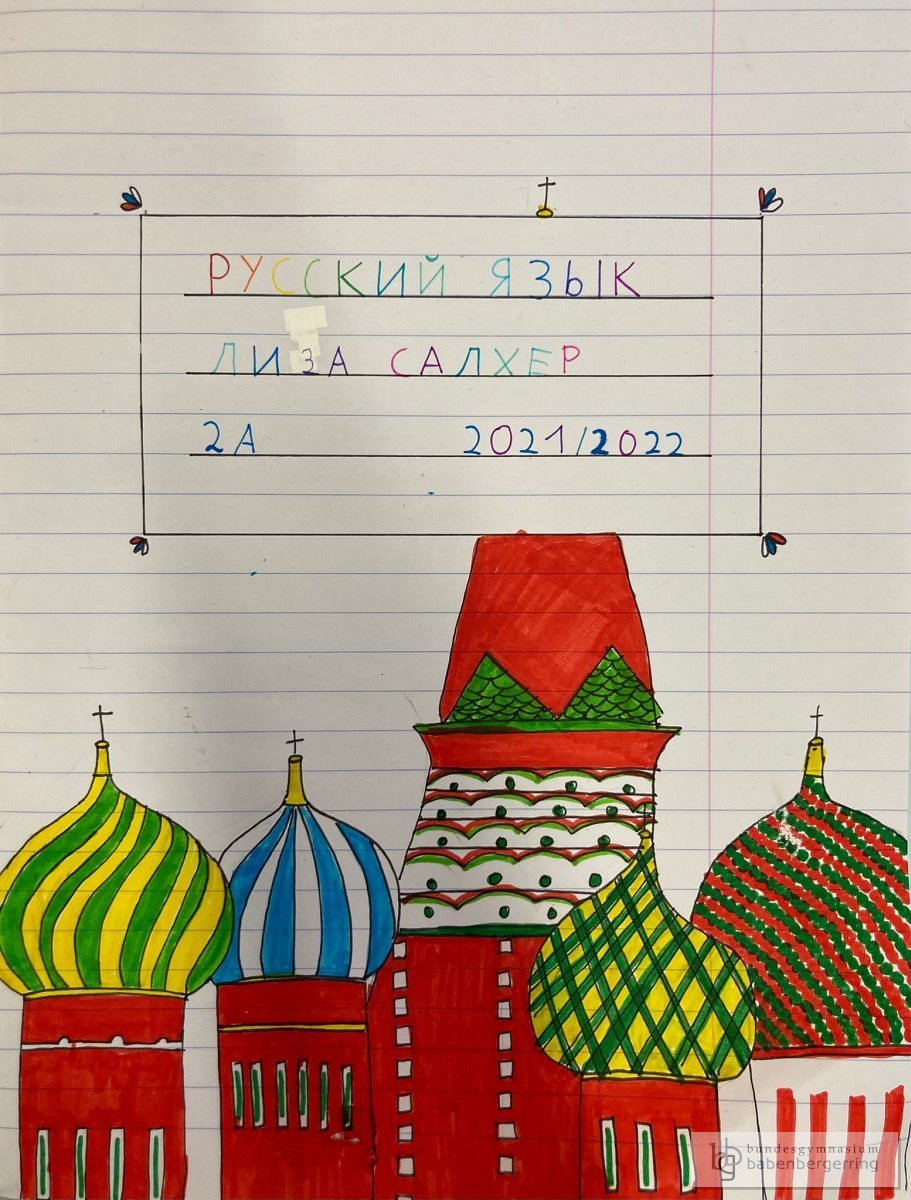 РУССКИЙ ЯЗЫК
ЛИЗА САЛХЕР
2А 2021/2022
bundesgymnasium
babenbergerring